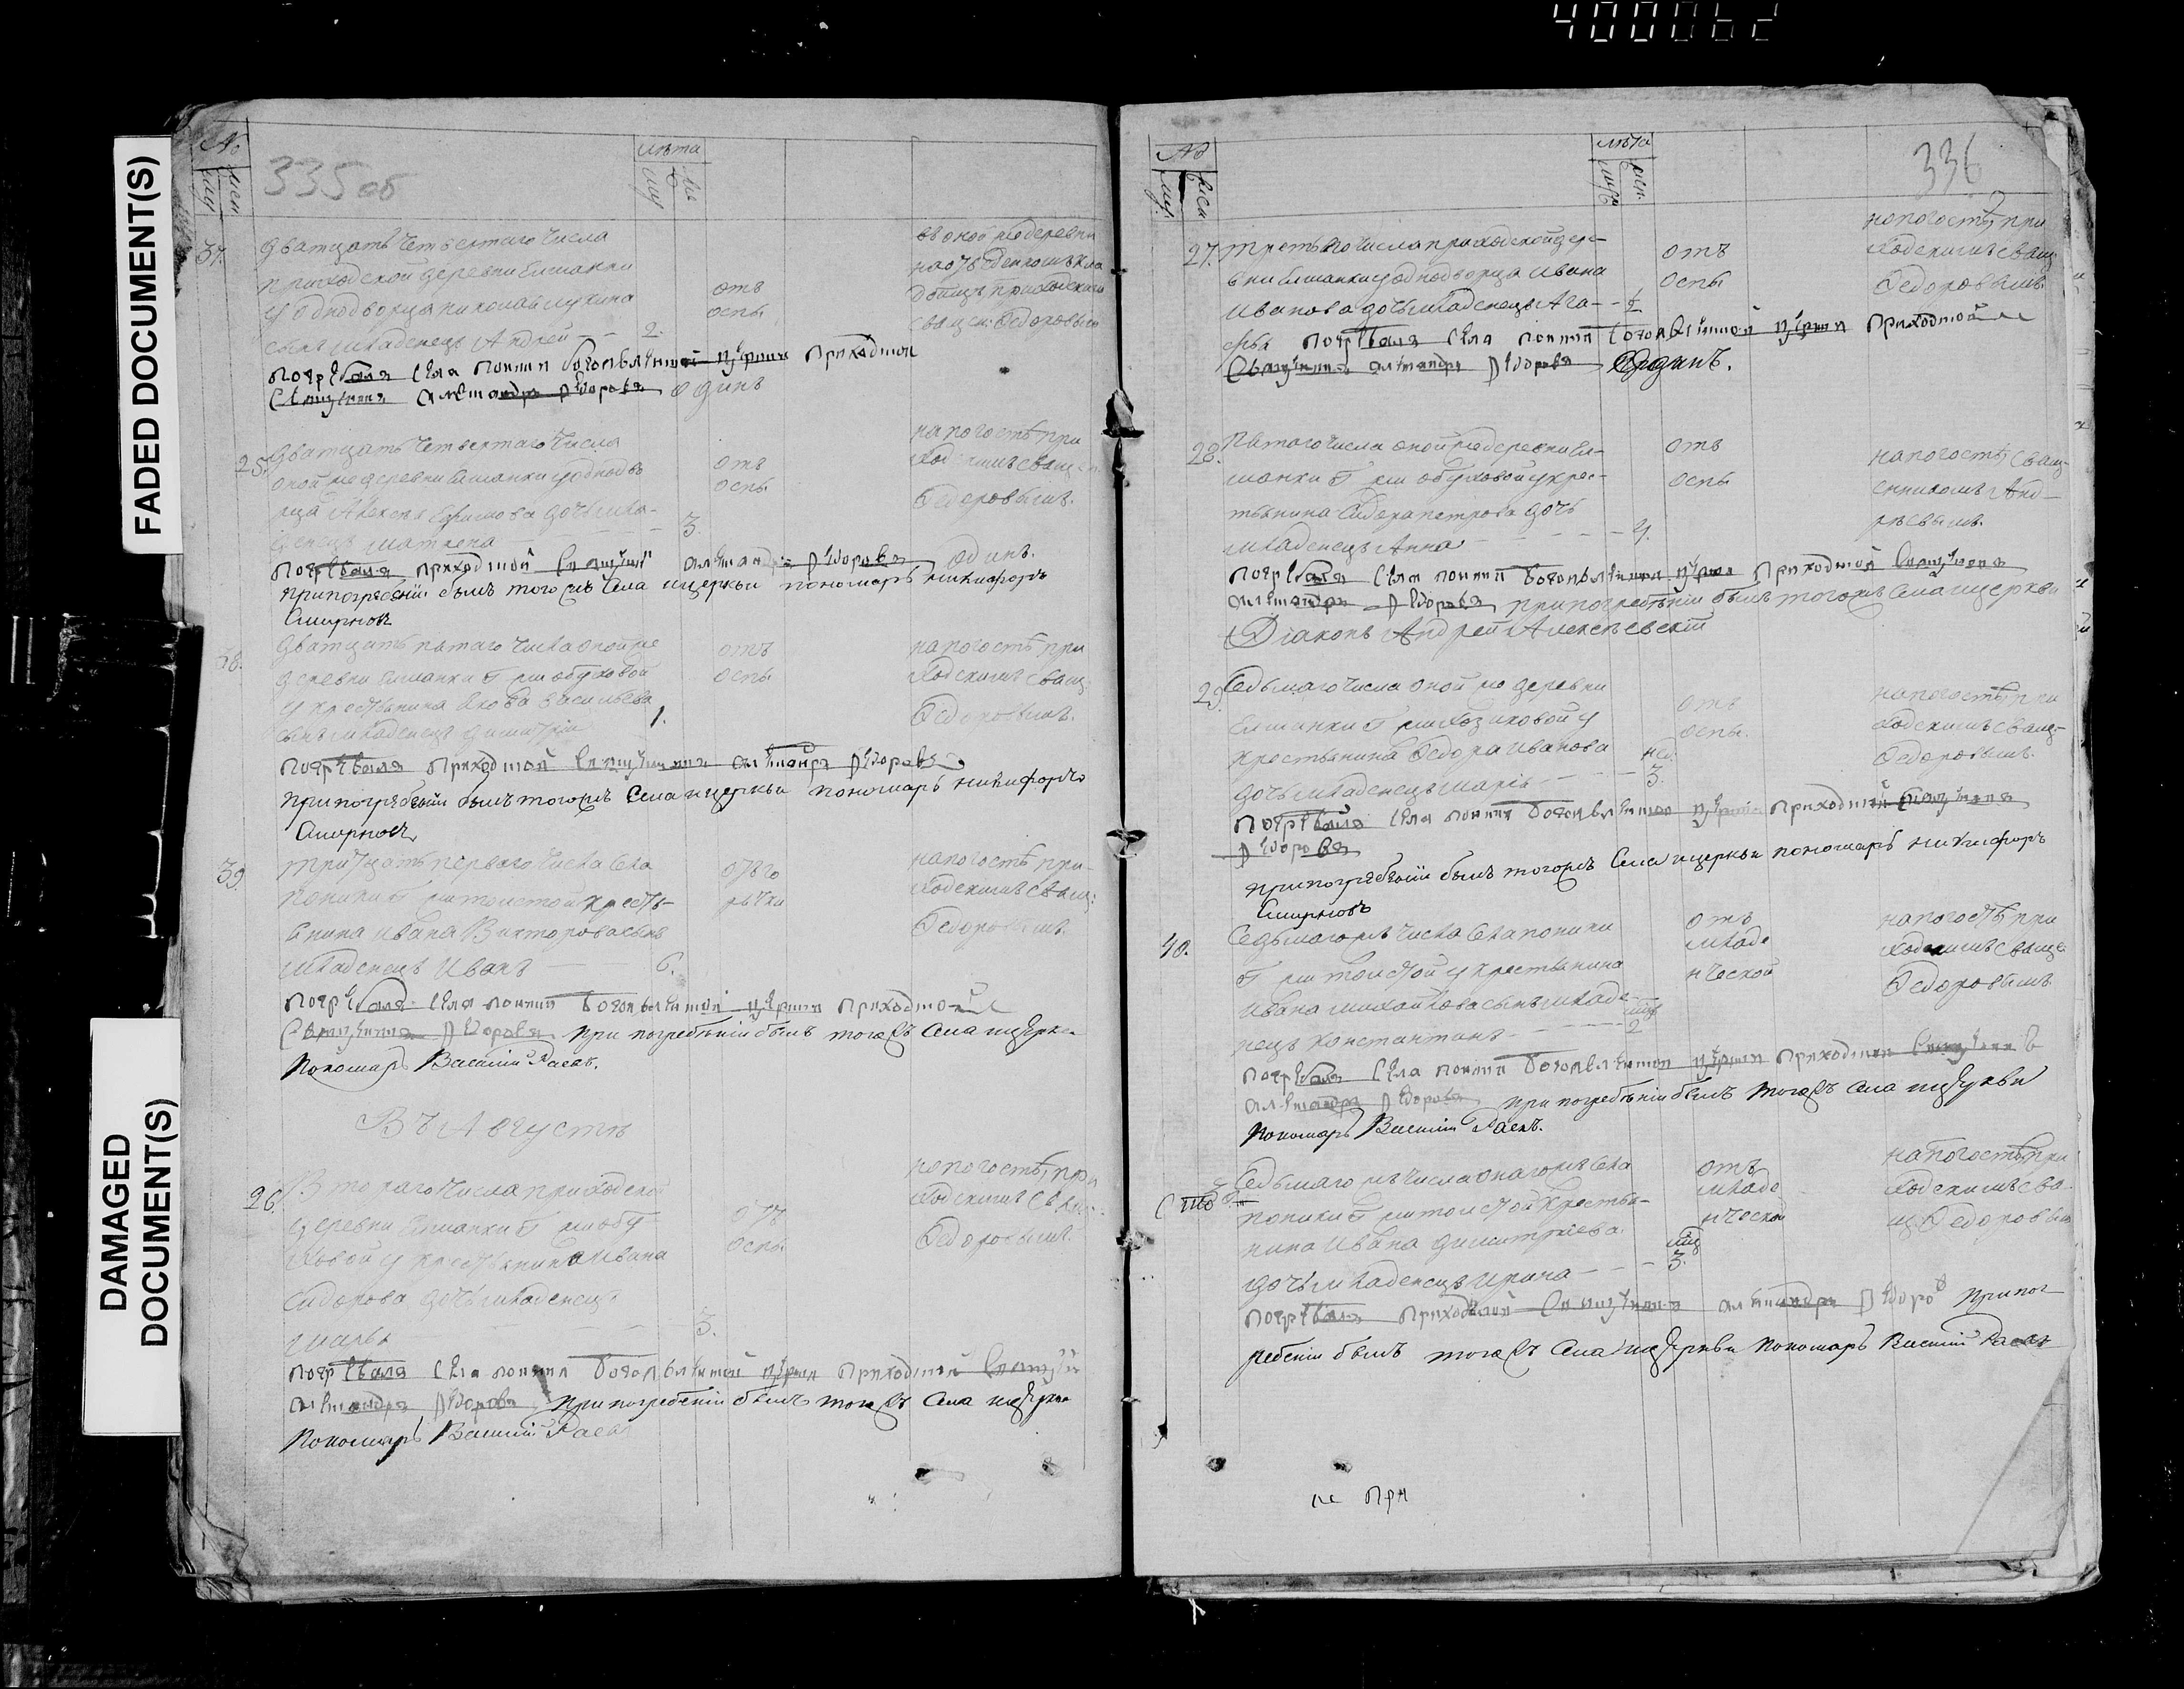 400062
FADED DOCUMENT(S)
DAMAGED
DOCUMENT(S)
№
лѣта
335 об
муж
жен
37.
дватцать четвертаго числа
приходской деревни Елшанки
у однодворца
сынъ младенецъ Андрей
2.
отъ
оспы
во оной же деревни
приходскимъ
священ: Федоровымъ
погребалъ села попики богоявленской церкви приходской
священникъ александръ федоровъ одинъ
25.
дватцать четвертаго числа
оной же деревни Елшанки у однодво
рца Алексея Ефимова дочь мла-
денецъ матрена
3.
отъ
оспы
на погостѣ при
ходскимъ свящ
Федоровымъ.
погребалъ приходской священ александръ федоровъ одинъ.
при погребенiи былъ тогожъ села и церкви пономарь никифоръ
Смирновъ
38.
дватцать пятаго числа оной же
деревни Елшанки т ж обуховой
у крестьянина Якова Васильева
сынъ младенецъ димитрiй
1.
отъ
оспы
на погостѣ при
ходскимъ свящ.
Федоровымъ.
погребалъ приходской священникъ александръ федоровъ
при погребенiи былъ тогожъ села и церкви пономарь никифоръ
Смирновъ
39.
тритцать перваго числа села
попики т ж толстой кресть-
янина Ивана Викторова сынъ
младенецъ Иванъ
6.
отъ го
рячки
на погостѣ при-
ходскимъ свящ:
Федоровымъ.
погребалъ села попики богоявленской церкви приходской
священникъ федоровъ при погребенiи былъ тогожъ села и церкви
пономарь Василiй Раевъ.
Въ Августѣ
26.
Втораго числа приходской
деревни Елшанки т ж обу
ховой у крестьянина Ивана
Сидорова дочь младенецъ
3.
отъ
оспы
на погостѣ при
ходскимъ свящ.
Федоровымъ.
погребалъ села попики богоявленской церкви приходской священ
александръ федоровъ при погребенiи былъ тогожъ села и церкви
пономарь Василiй Раевъ
№
лѣта
336
муж.
жен
27.
третьяго числа приходской дере-
вни Елшанки у однодворца Ивана
Иванова дочь младенецъ Ага-
фья
отъ
оспы
на погостѣ при
ходскимъ свящ
Федоровымъ.
погребалъ села попики богоявленской церкви приходской
священникъ александръ федоровъ одинъ.
28.
Пятаго числа оной же деревни Ел-
шанки т ж обуховой у крес-
тьянина Сидора петрова дочь
младенецъ Анна
4.
отъ
оспы
на погостѣ свящ-
енникомъ Анд-
рѣевымъ.
погребалъ села попики богоявленской церкви приходской священникъ
александръ федоровъ при погребенiи былъ тогожъ села и церкви
Дiаконъ Андрей Алексѣевскiй
29.
Седьмаго числа оной же деревни
Елшанки т ж Хозиковой у
крестьянина Федора Иванова
дочь младенецъ марiя
нед.
3.
отъ
оспы.
на погостѣ при
ходскимъ свящ-
Федоровымъ.
погребалъ села попики богоявленской церкви приходской священникъ
федоровъ
при погребенiи былъ тогожъ села и церкви пономарь никифоръ
Смирновъ
40.
Седьмагожъ числа села попики
т ж толстой у крестьянина
Ивана михайлова сынъ младе-
нецъ Константинъ
2
отъ
младе
нческой
на погостѣ при
ходскимъ свяще
Федоровымъ
погребалъ села попики богоявленской церкви приходской священникъ
александръ федоровъ при погребенiи былъ тогожъ села и церкви
пономарь Василiй Раевъ.
Седьмагожъ числа онагожъ села
попики т ж толстой крестья-
нина Ивана димитрiева
дочь младенецъ Ирина
3.
отъ
младе
нческой
на погостѣ при
ходскимъ свя-
щ Федоровым
погребалъ приходской священникъ александръ федоровъ при пог
ребенiи былъ тогожъ села и церкви пономарь Василiй Раевъ